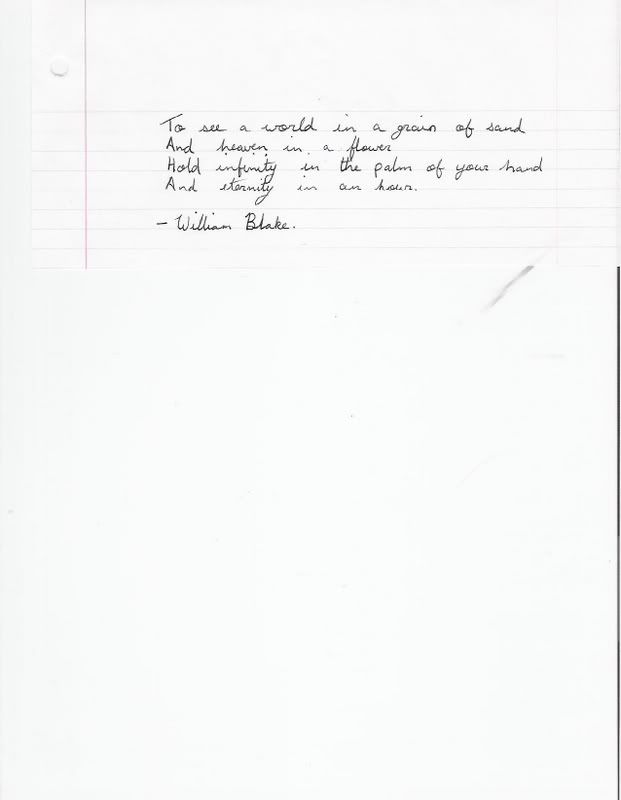 To see a world in a grain of sand
And heaven in a flower
Hold infinity in the palm of your hand
And eternity in an hour.
- William Blake.